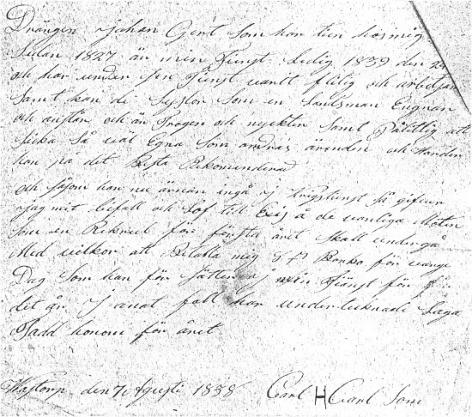 Drängen Johan Gert som har tient hos mig
Sedan 1837 är min Tienst ledig 1839 den 24
och har under sin Tienst varit flitig och arbetsam
samt kan de Sysslor som en Landsman Engnar
och anstår och är Trogen och nyckter samt Pålitlig att
skicka så väl Egna som andras ärenden och Handen
kan på det Bästa Rekomenderas
och såsom han nu ämnar ingå i tienst så gifves
jag mit befalt och Lof til Beij å de vanliga Möten
som en Rekrut för första året skall undergå
Med vilkor att Betalla mig Banko för varge
Dag som han för sättes i min Tienst för
det år I anat fall har undertecknade Laga
Stadd honom för året
den 7 Agusti 1838 Carl H Carl Son